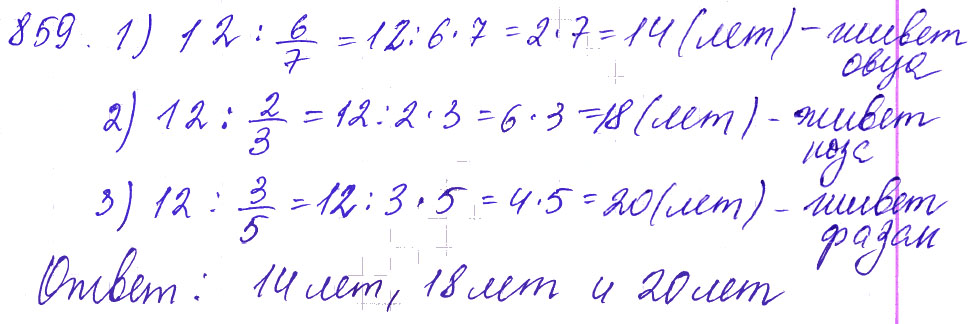 859. 1) 12 : 6/7 = 12:6·7 = 2·7 = 14 (лет) – живет
овца
2) 12 : 2/3 = 12:2·3 = 6·3 = 18 (лет) – живет
коза
3) 12 : 3/5 = 12:3·5 = 4·5 = 20 (лет) – живет
фазан
Ответ: 14 лет, 18 лет и 20 лет